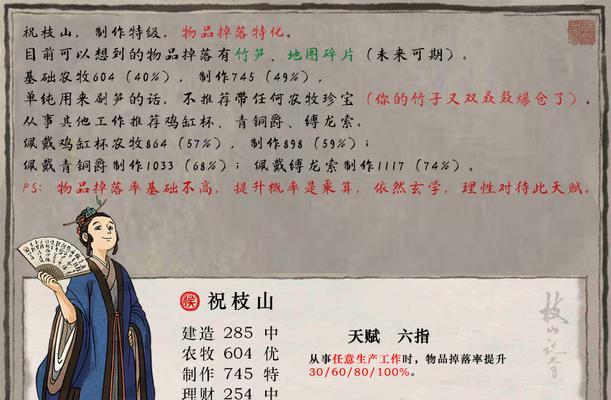 祝枝山，制作特级，物品掉落特化。
目前可以想到的物品掉落有竹笋、地图碎片（未来可期）。
基础农牧604（40%），制作745（49%），
单纯用来刷笋的话，不推荐带任何农牧珍宝（你的竹子又双叒叕爆仓了）。
从事其他工作推荐鸡缸杯、青铜爵、缚龙索。
佩戴鸡缸杯农牧864（57%），制作898（59%）；
佩戴青铜爵制作1033（68%）；佩戴缚龙索制作1117（74%）。
PS：物品掉落率基础不高，提升概率是乘算，依然玄学，理性对待此天赋。
侯 祝枝山
建造 285 中
农牧 604 优
制作 745 特
理财 254 中
天赋 六指
从事任意生产工作时，物品掉落率提升
30/60/80/100%。